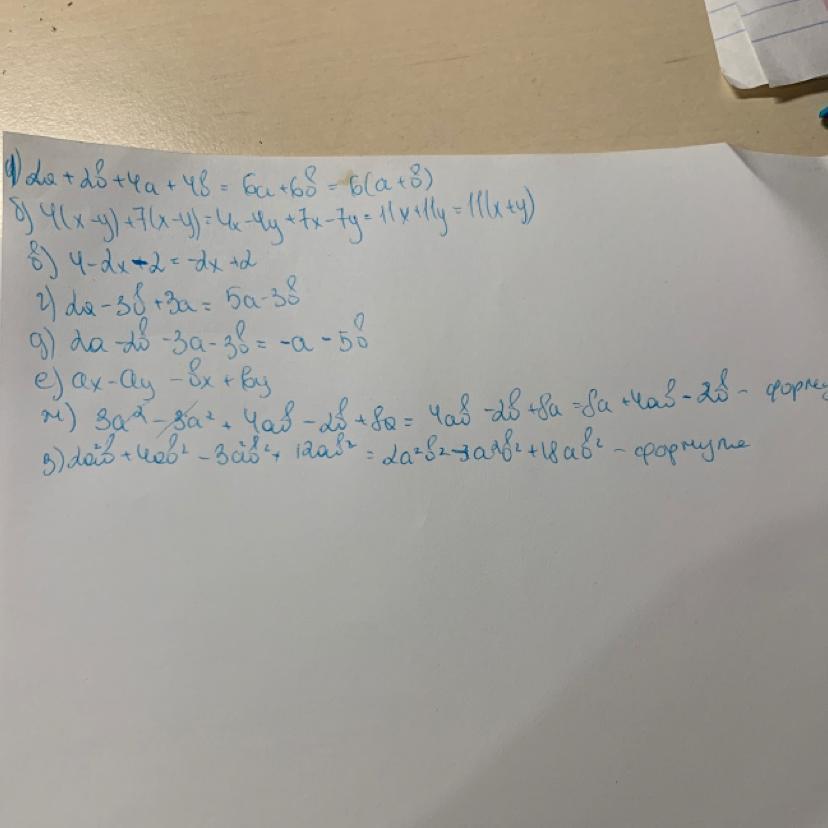 а) 2a + 2b + 4a + 4b = 6a + 6b = 6(a + b)
б) 4(x - y) + 7(x - y) = 4x - 4y + 7x - 7y = 11x + 11y = 11(x + y)
в) 4 - 2x - 2 = -2x + 2
г) 2a - 3b + 3a = 5a - 3b
д) 2a - 2b - 3a - 3b = -a - 5b
е) ax - ay - bx + by
ж) 3a² - 3a² + 4ab - 2b + 8a = 4ab - 2b + 8a = 8a + 4ab - 2b -
з) 2a²b + 4ab² - 3a²b² + 12ab² = 2a²b² - 3a²b² + 18ab² -